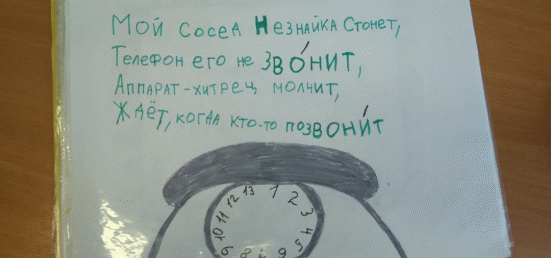 Мой сосед Незнайка Стонет,
Телефон его не зво́нит,
Аппарат-хитрец молчит,
Ждёт, когда кто-то позвони́т
10 11 12 13 1 2 3 4 5